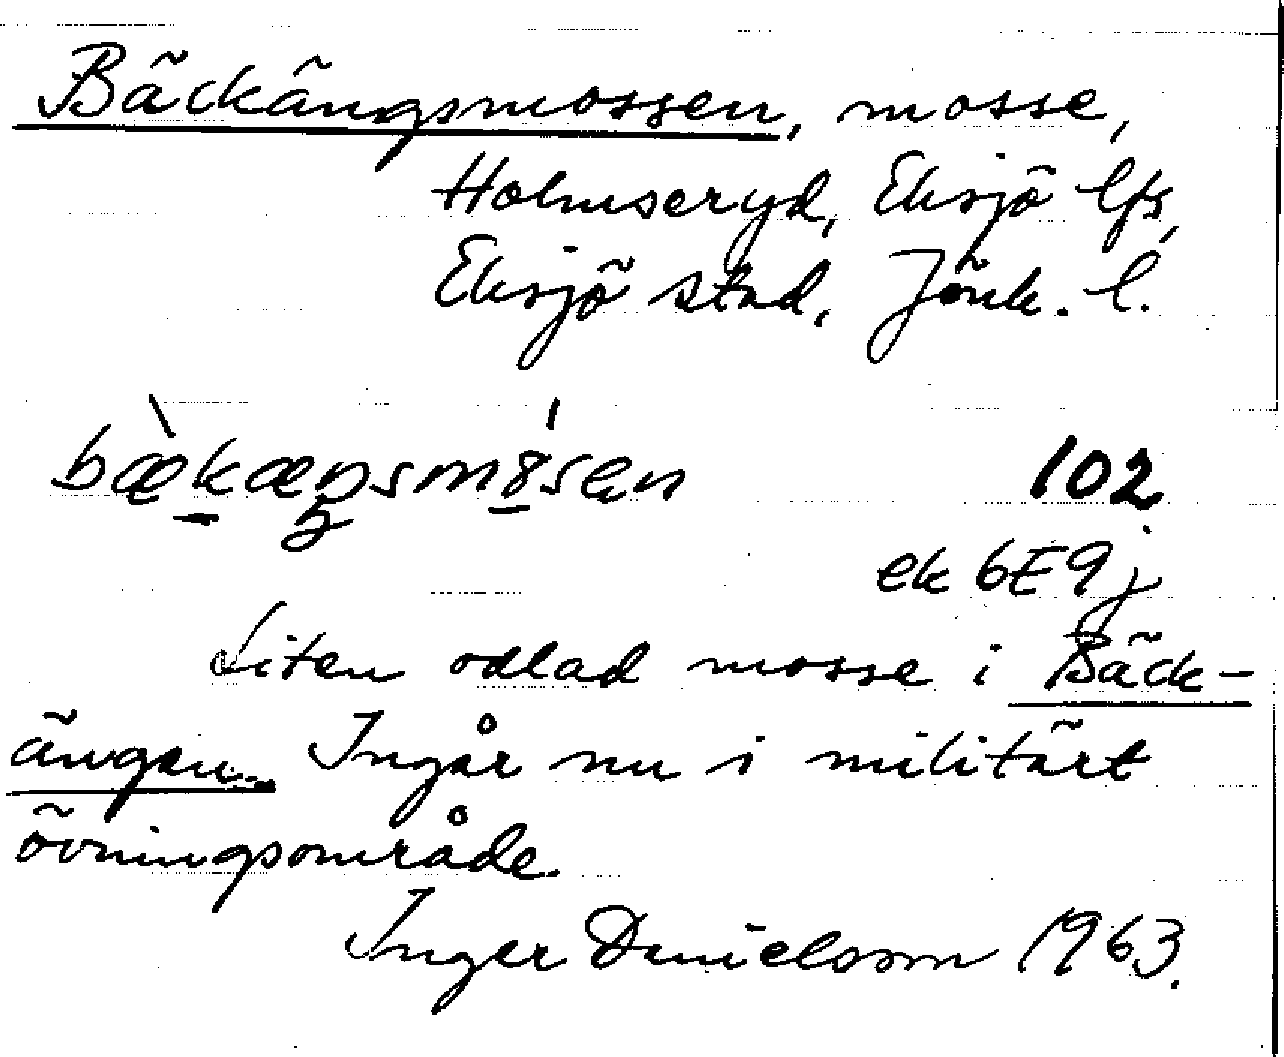 Bäckängsmossen, mosse,
Holmseryd, Eksjö lfs,
Eksjö stad, Jönk. l.
bæ̀kæŋsmósen
102
ek 6E9j
Liten odlad mosse i Bäck-
ängen. Ingår nu i militärt
övningsområde.
Inger Danielsson 1963.